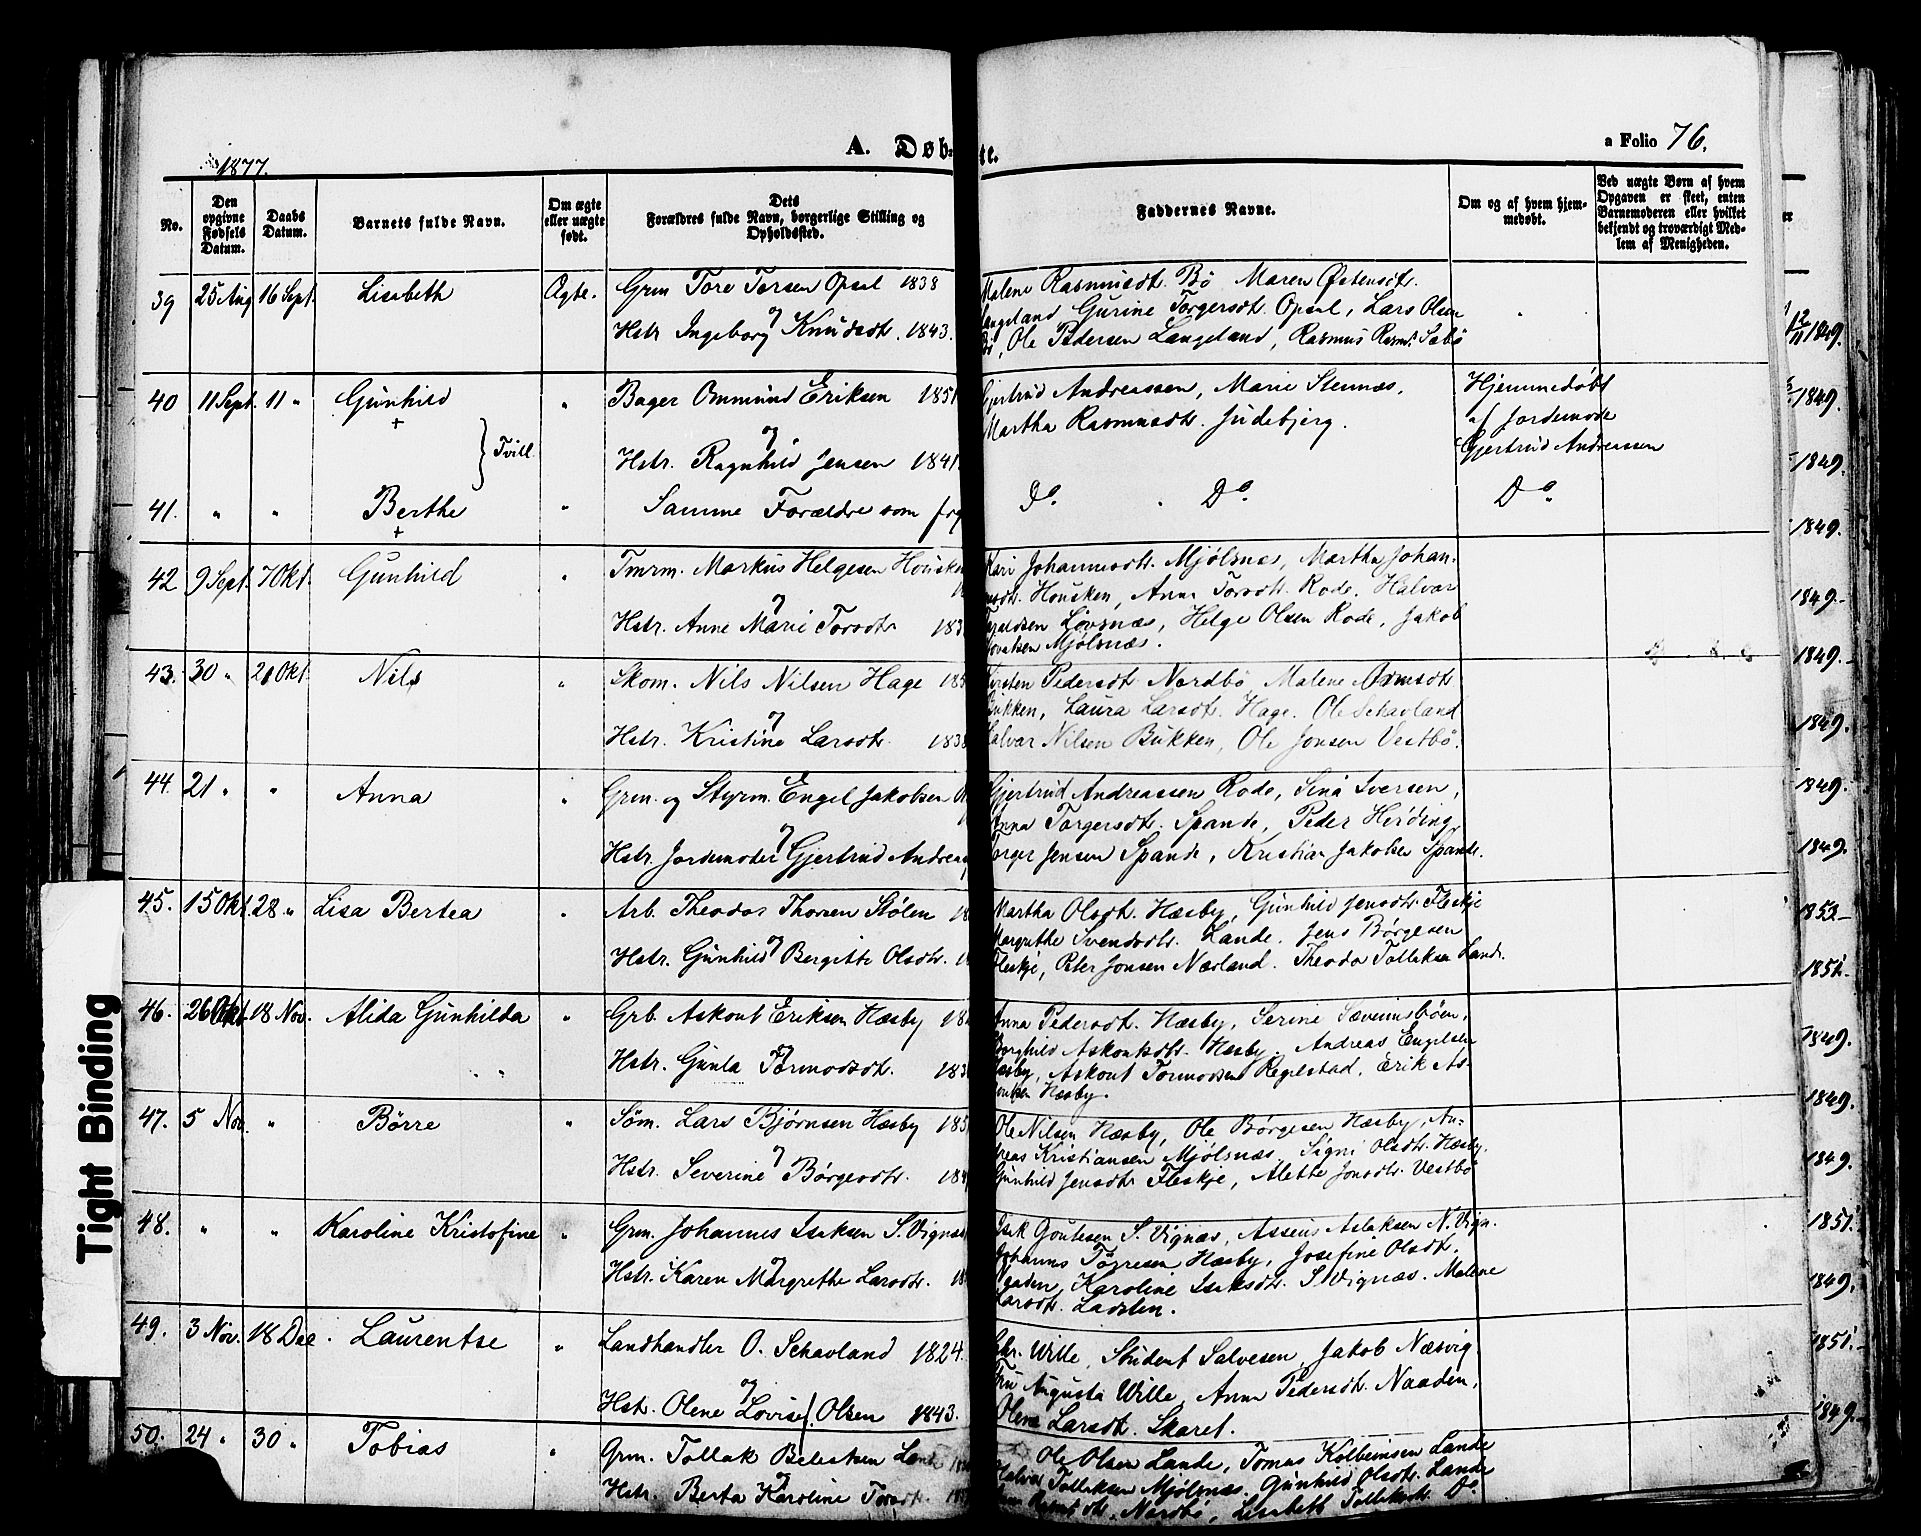 A. Døbte.
a Folio 76.
1877.
No.
Den opgivne Fødsels Datum.
Daabs Datum.
Barnets fulde Navn.
Om ægte eller uægte født.
Dets Forældres fulde Navn, borgerlige Stilling og Opholdssted.
Faddernes Navne.
Om og af hvem hjemmedøbt.
Ved uægte Børn af hvem Opgaven er skeet, enten Barnemoderen eller hvilket bekjendt og troværdigt Medlem af Menigheden.
39 25 Aug 16 Sept. Lisabeth Ægte. Grm Tore Torsen Opsal 1838
og
Hstr Ingeborg Knudsdt. 1843.
Malene Rasmusdt. Bø Maren Østensdt.
Langeland Gurine Torgersdt. Opsal, Lars Olsen
Bø, Ole Pedersen Langeland, Rasmus Rasms. Sabø
40 11 Sept. 11 " Gunhild " Bager Ommund Eriksen 1851
+
} Tvill.
og
Hstr. Ragnhild Jensen 1841.
Gjertrud Andreassen, Marie Stennæs,
Martha Rasmusdt. Judebjerg.
Hjemmedøbt
af Jordemode
Gjertrud Andreassen
41. " " Berthe " Samme Forældre som frg
+
Do. Do. Do.
42 9 Sept. 7 Okt. Gunhild " Tmrm. Markus Helgesen Housken
og
Hstr. Anne Marie Torsdtr 183
Kari Johannesdt. Mjølsnæs, Martha Johan-
nesdt. Housken, Anna Torsdt. Rode, Halvar
Løvsnæs, Helge Olsen Rode, Jakob
Mjølsnæs.
43. 30 " 21 Okt. Nils " Skom. Nils Nilsen Hage 185
og
Hstr. Kristine Larsdtr. 1838
Kirsten Pedersdt. Nordbø Malene Ormsdt.
Bukken, Laura Larsdt. Hage. Ole Schavland
Halvar Nilsen Bukken, Ole Jonsen Vestbø.
44. 21 " " Anna " Grm. og Styrm. Engel Jakobsen
og
Hstr. Jordemoder Gjertrud Andreas
Gjertrud Andreassen Rode, Sina Iversen,
Anna Torgersdt. Spande, Peder Hirding
Torger Jensen Spande, Kristian Jakobsen Spande.
45. 15 Okt. 28 " Lisa Bertea " Arb. Theodor Thorsen Stølen 18
og
Hstr. Gunhild Bergitte Olsdtr.
Martha Olsdt. Hæsby, Gunhild Jensdtr. Fleskje
Margrethe Svendsdtr. Lande. Jens Børgesen
Fleskje, Peter Jonsen Nærland. Theodor Tolleksen Lande.
46. 26 Okt. 18 Nov. Alida Gunhilda " Grb. Askout Eriksen Hæsby 18
og
Hstr. Gunla Tormodsdt. 183
Anna Pedersdt. Hæsby, Serine Sæveruisbøen,
Borghild Askoutsdt. Hæsby, Andreas Engelsen
Hæsby, Askout Tormodsen Regelstad, Erik As-
koutsen Hæsby.
47. 5 Nov. " Børre " Søm. Lars Bjørnsen Hæsby 185
og
Hstr. Severine Børgesdtr. 184
Ole Nilsen Hæsby, Ole Børgesen Hæsby, An-
dreas Kristiansen Mjølsnæs, Signi Olsdt. Hæsby.
Gunhild Jensdtr Fleskje, Alette Jonsdt. Vestbø
48. " " Karoline Kristofine " Grm. Johannes Isaksen S. Vignæs
og
Hstr. Karen Margrethe Larsdtr. 18
Isak Goutesen S. Vignæs, Assens Aslaksen N. Vign.
Johannes Tøgresen Hæsby, Josefine Olsdt.
Naaden, Karoline Isaksdt. S Vignæs. Malene
Larsdt. Ladsten.
49. 3 Nov. 18 Dec. Laurentse " Landhandler O. Schavland 1824.
og
Hstr. Olene Lovise Olsen 1843.
Chr. Wille, Student Salvesen, Jakob Næsvig
Fru Augusta Wille, Anna Pedersdt. Naaden,
Olena Larsdt. Skaret.
50. 24 " 30 " Tobias " Grm. Tollak Beleksen Lande
og
Hstr. Berta Karoline Torsdt.
Ole Olsen Lande, Tomas Kolbeinsen Lande
Halvar Tolleksen Mjølsnæs. Gunhild Olsdt. Lande
Nordbø, Lisabeth Do.
12/11 1849.
1849.
1849.
1849.
1849.
1849.
1849.
1849.
1849.
1852
1851.
1849.
1849.
1849.
1851.
1849.
1851.
1849.
Tight Binding